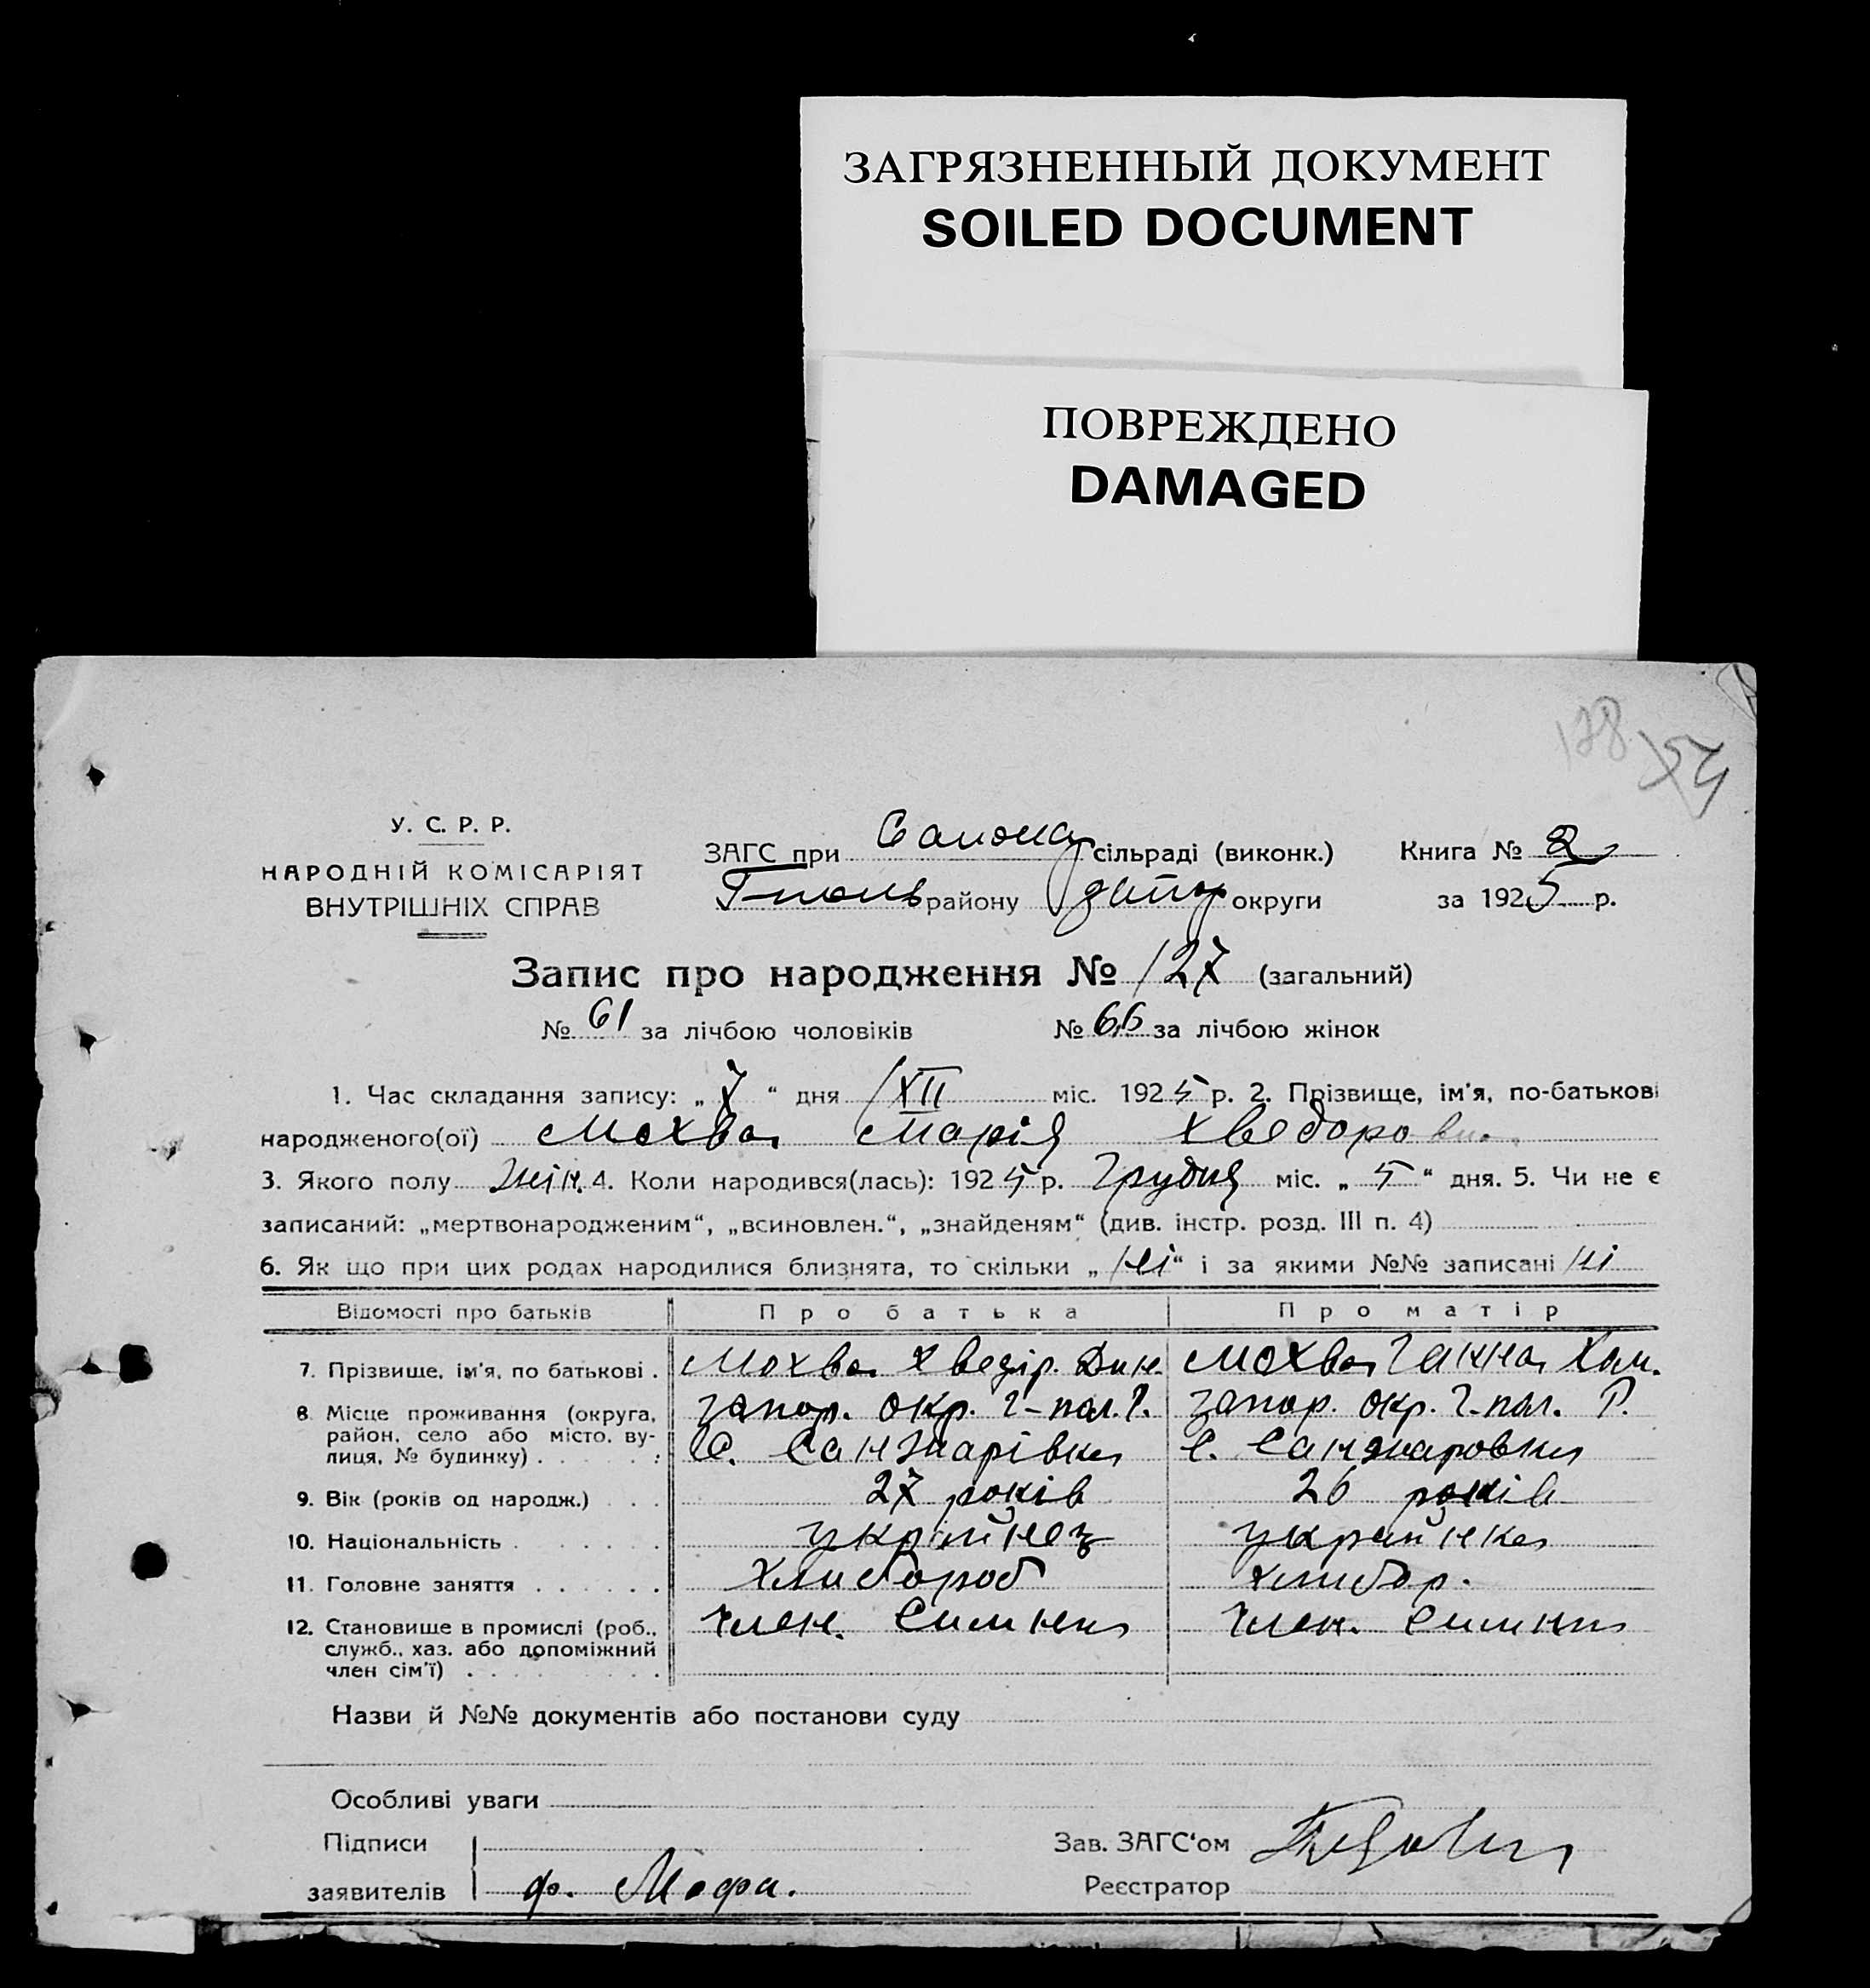 ЗАГРЯЗНЕННЫЙ ДОКУМЕНТ
SOILED DOCUMENT
ПОВРЕЖДЕНО
DAMAGED
128 154
У. С. Р. Р.
НАРОДНІЙ КОМІСАРІЯТ
ВНУТРІШНІХ СПРАВ
ЗАГС при сільраді (виконк.) Книга № 2
району округи за 1925 р.
Запис про народження № 127 (загальний)
№ 61 за лічбою чоловіків № 66 за лічбою жінок
1. Час складання запису: „ 7 “ дня XII міс. 1925 р. 2. Прізвище, ім'я, по-батькові
народженого(ої) Мохва Марія Хведоровн.
3. Якого полу жін. 4. Коли народився(лась): 1925 р. Грудня міс. „ 5 “ дня. 5. Чи не є
записаний: „мертвонародженим“, „всиновлен.“, „знайденям“ (див. інстр. розд. III п. 4)
6. Як що при цих родах народилися близнята, то скільки „ ні “ і за якими №№ записані ні
Відомості про батьків Про батька Про матір
7. Прізвище, ім'я, по батькові . Мохва Хведір. Дин. Мохва Ганна Хам.
8 Місце проживання (округа, район, село або місто, вулиця, № будинку) . . . запор. окр. Г-пол. Р. запор. окр. Г-пол. Р.
С. Санжарівка С. Санжаровка
9. Вік (років од народж.) . . . 27 років 26 років
10. Національність . . . . . . . українец українка
11. Головне заняття . . . . . . Хлибороб хлибор.
12. Становище в промислі (роб., служб., хаз. або допоміжний член сім'ї) . . . . . . член. Симни член. Симни
Назви й №№ документів або постанови суду
Особливі уваги
Підписи
заявителів ф. Мофа.
Зав. ЗАГС'ом
Реєстратор